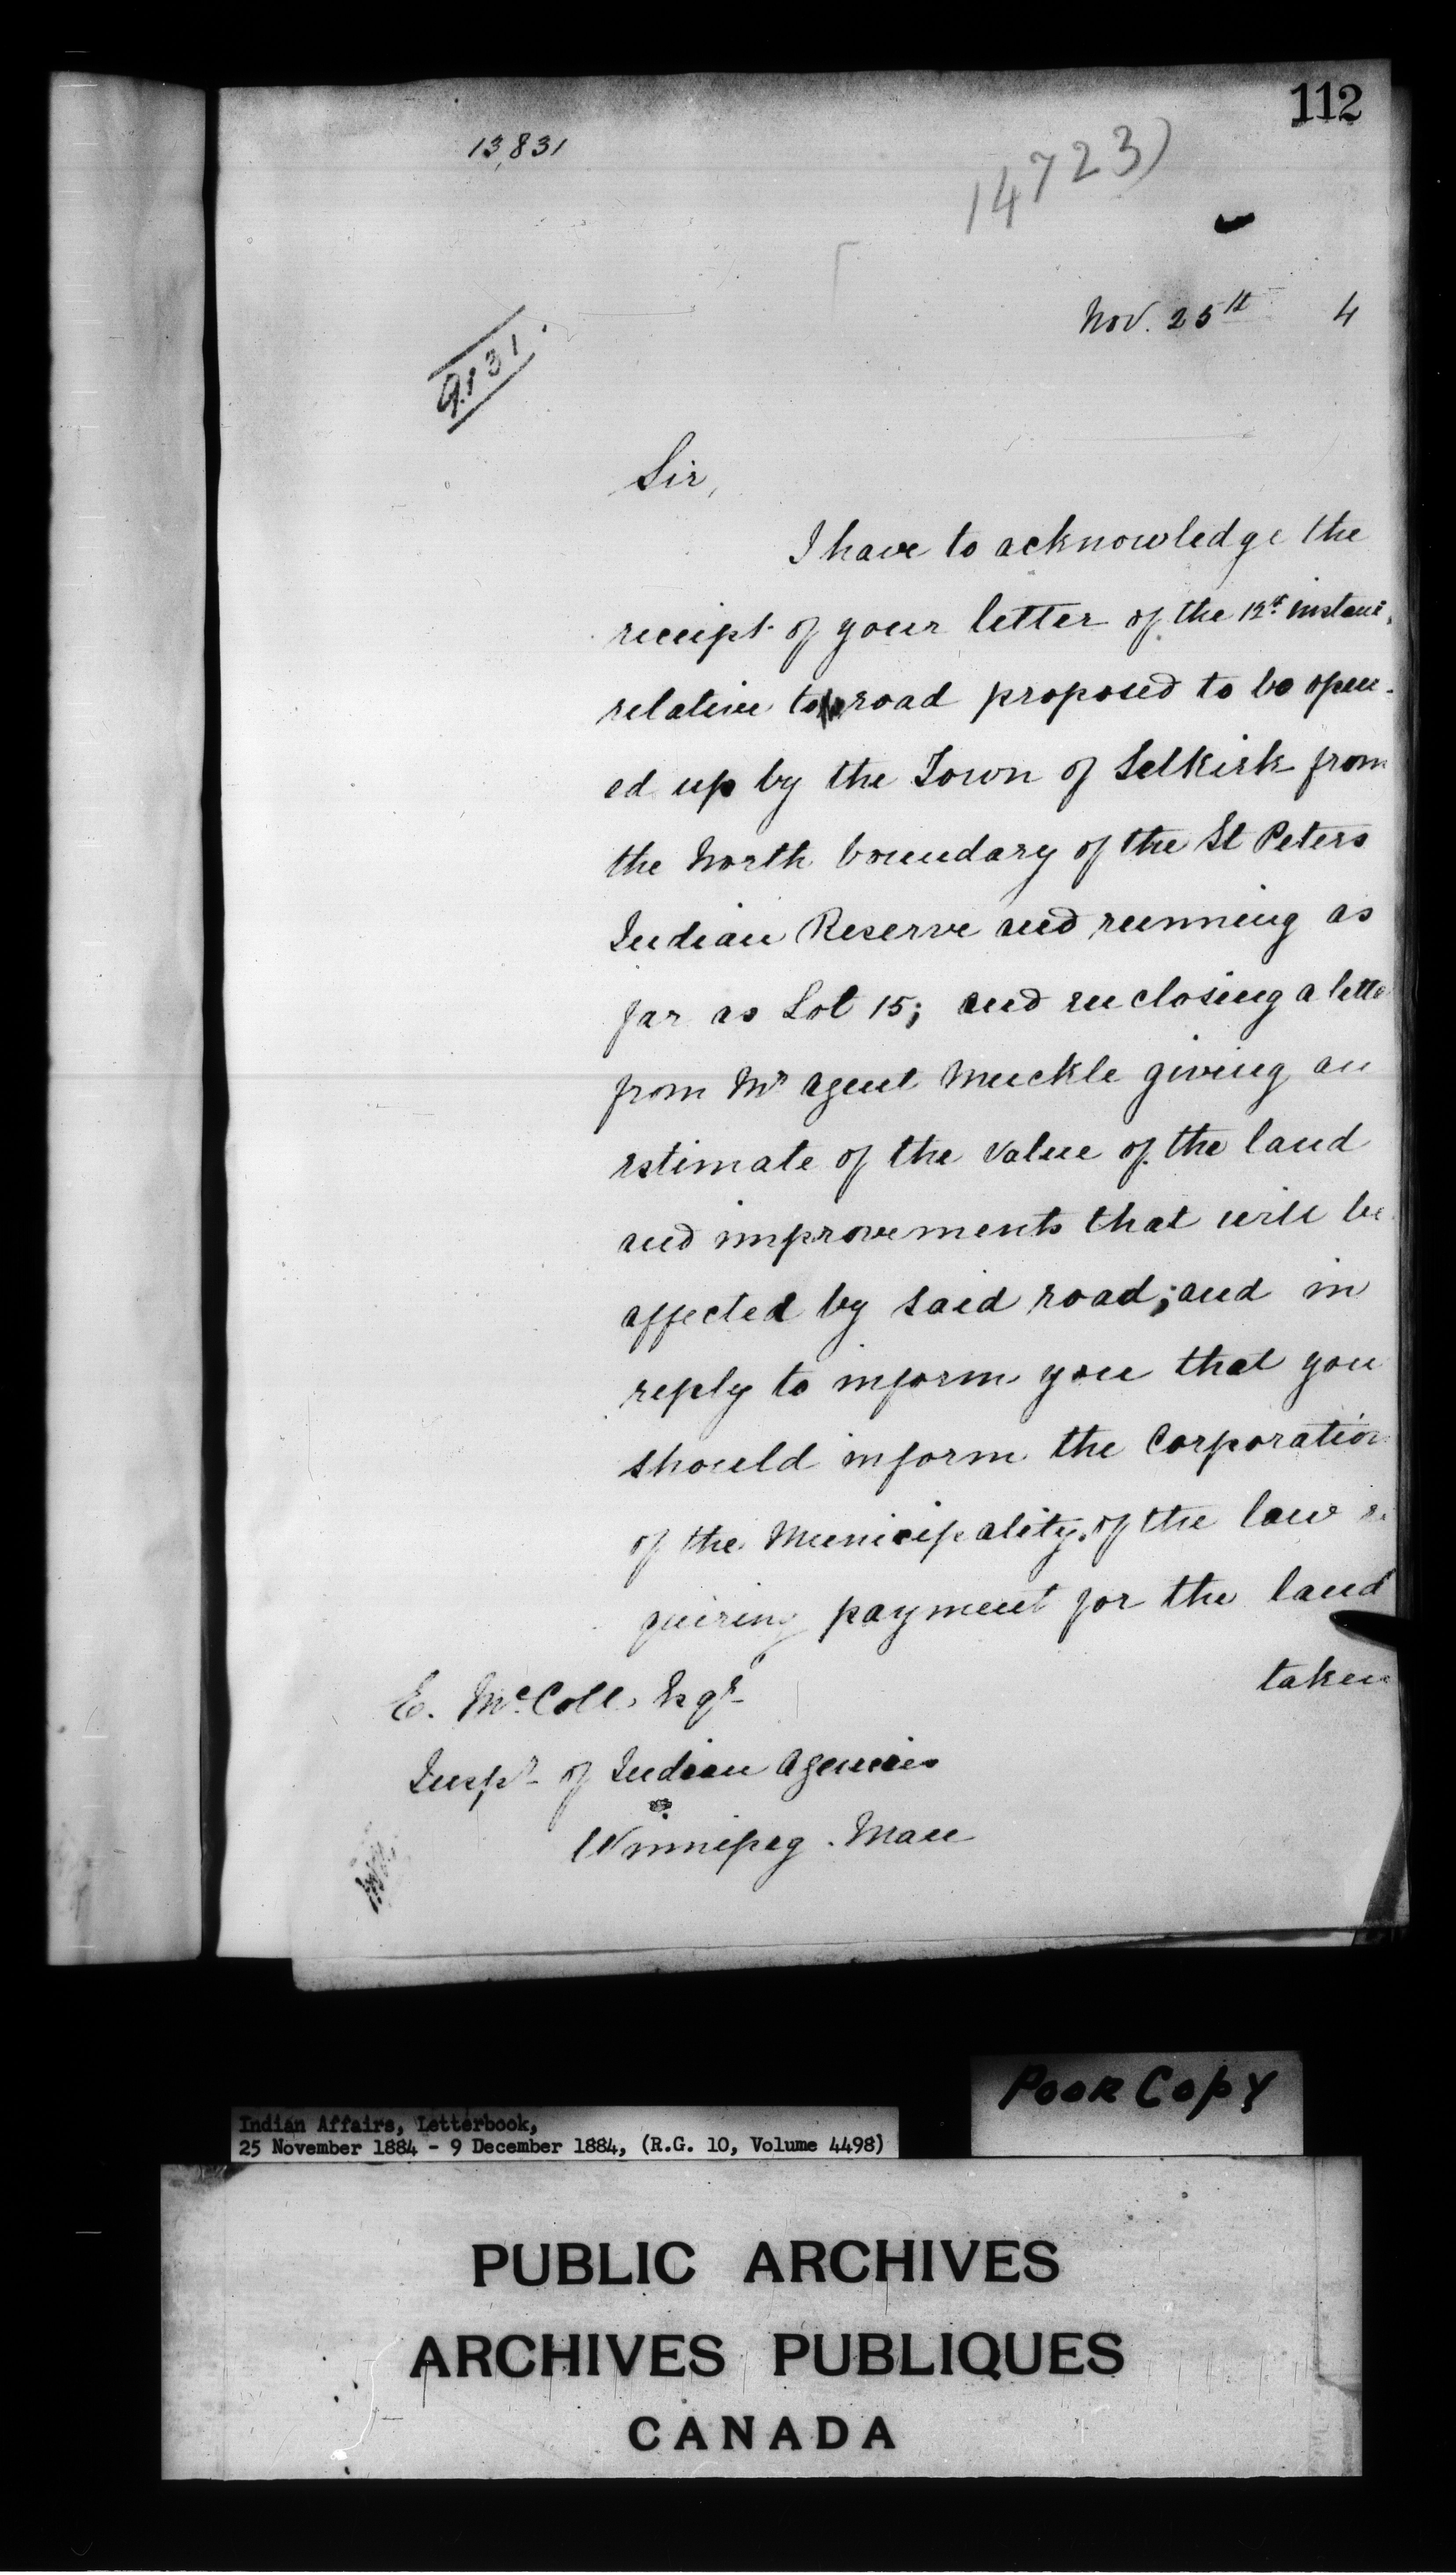 112
13,831
14723)
Nov. 25th 4
9131.
Sir,
I have to acknowledge the
receipt of your letter of the 12th instant,
relative to road proposed to be open-
ed up by the Town of Selkirk from
the North boundary of the St Peters
Indian Reserve and running as
far as Lot 15; and enclosing a lette
from Mr Agent Muckle giving an
estimate of the value of the land
and improvements that will be
affected by said road; and in
reply to inform you that you
should inform the Corporation
of the Municipality, of the law re
quiring payment for the land
taken
E. McColl, Esqr
Inspr of Indian Agencies
Winnipeg. Man
Poor Copy
Indian Affairs, Letterbook,
25 November 1884 - 9 December 1884, (R.G. 10, Volume 4498)
PUBLIC ARCHIVES
ARCHIVES PUBLIQUES
CANADA